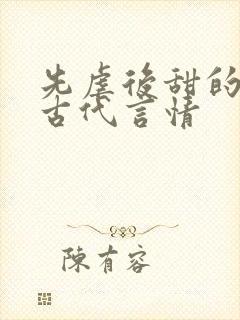 先虐後甜的
古代言情
陳有容